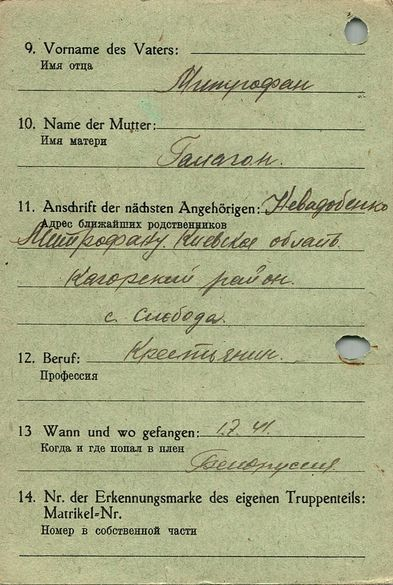 9. Vorname des Vaters:
Имя отца
Митрофан
10. Name der Mutter:
Имя матери
Галагон.
11. Anschrift der nächsten Angehörigen: Невадобенко
Адрес ближайших родственников
Митрофану. Киевская область.
Кагорский район.
с. Слобода.
12. Beruf: Крестьянин.
Профессия
13 Wann und wo gefangen: 1.7.41.
Когда и где попал в плен
Белоруссия
14. Nr. der Erkennungsmarke des eigenen Truppenteils:
Matrikel=Nr.
Номер в собственной части